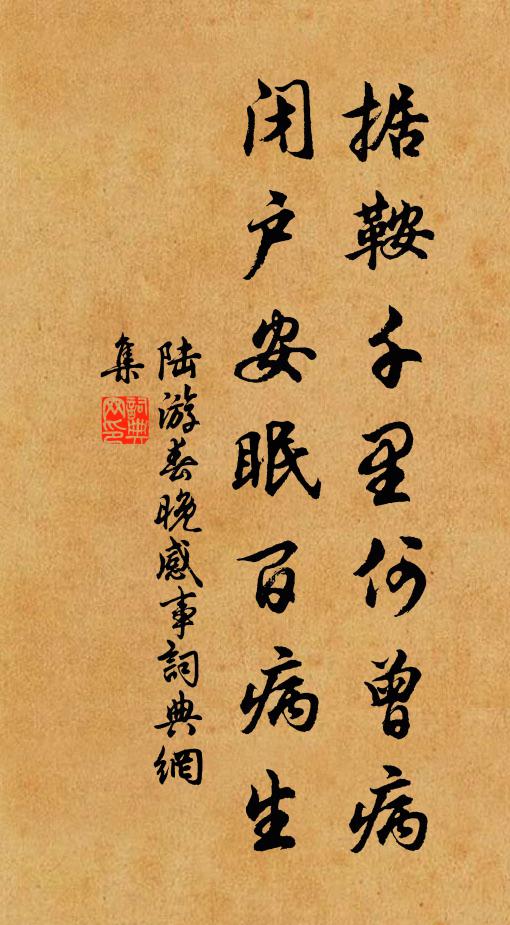 据鞍千里何曾病
闭户安眠百病生
陆游春晚感事词典網
集
詞典網印